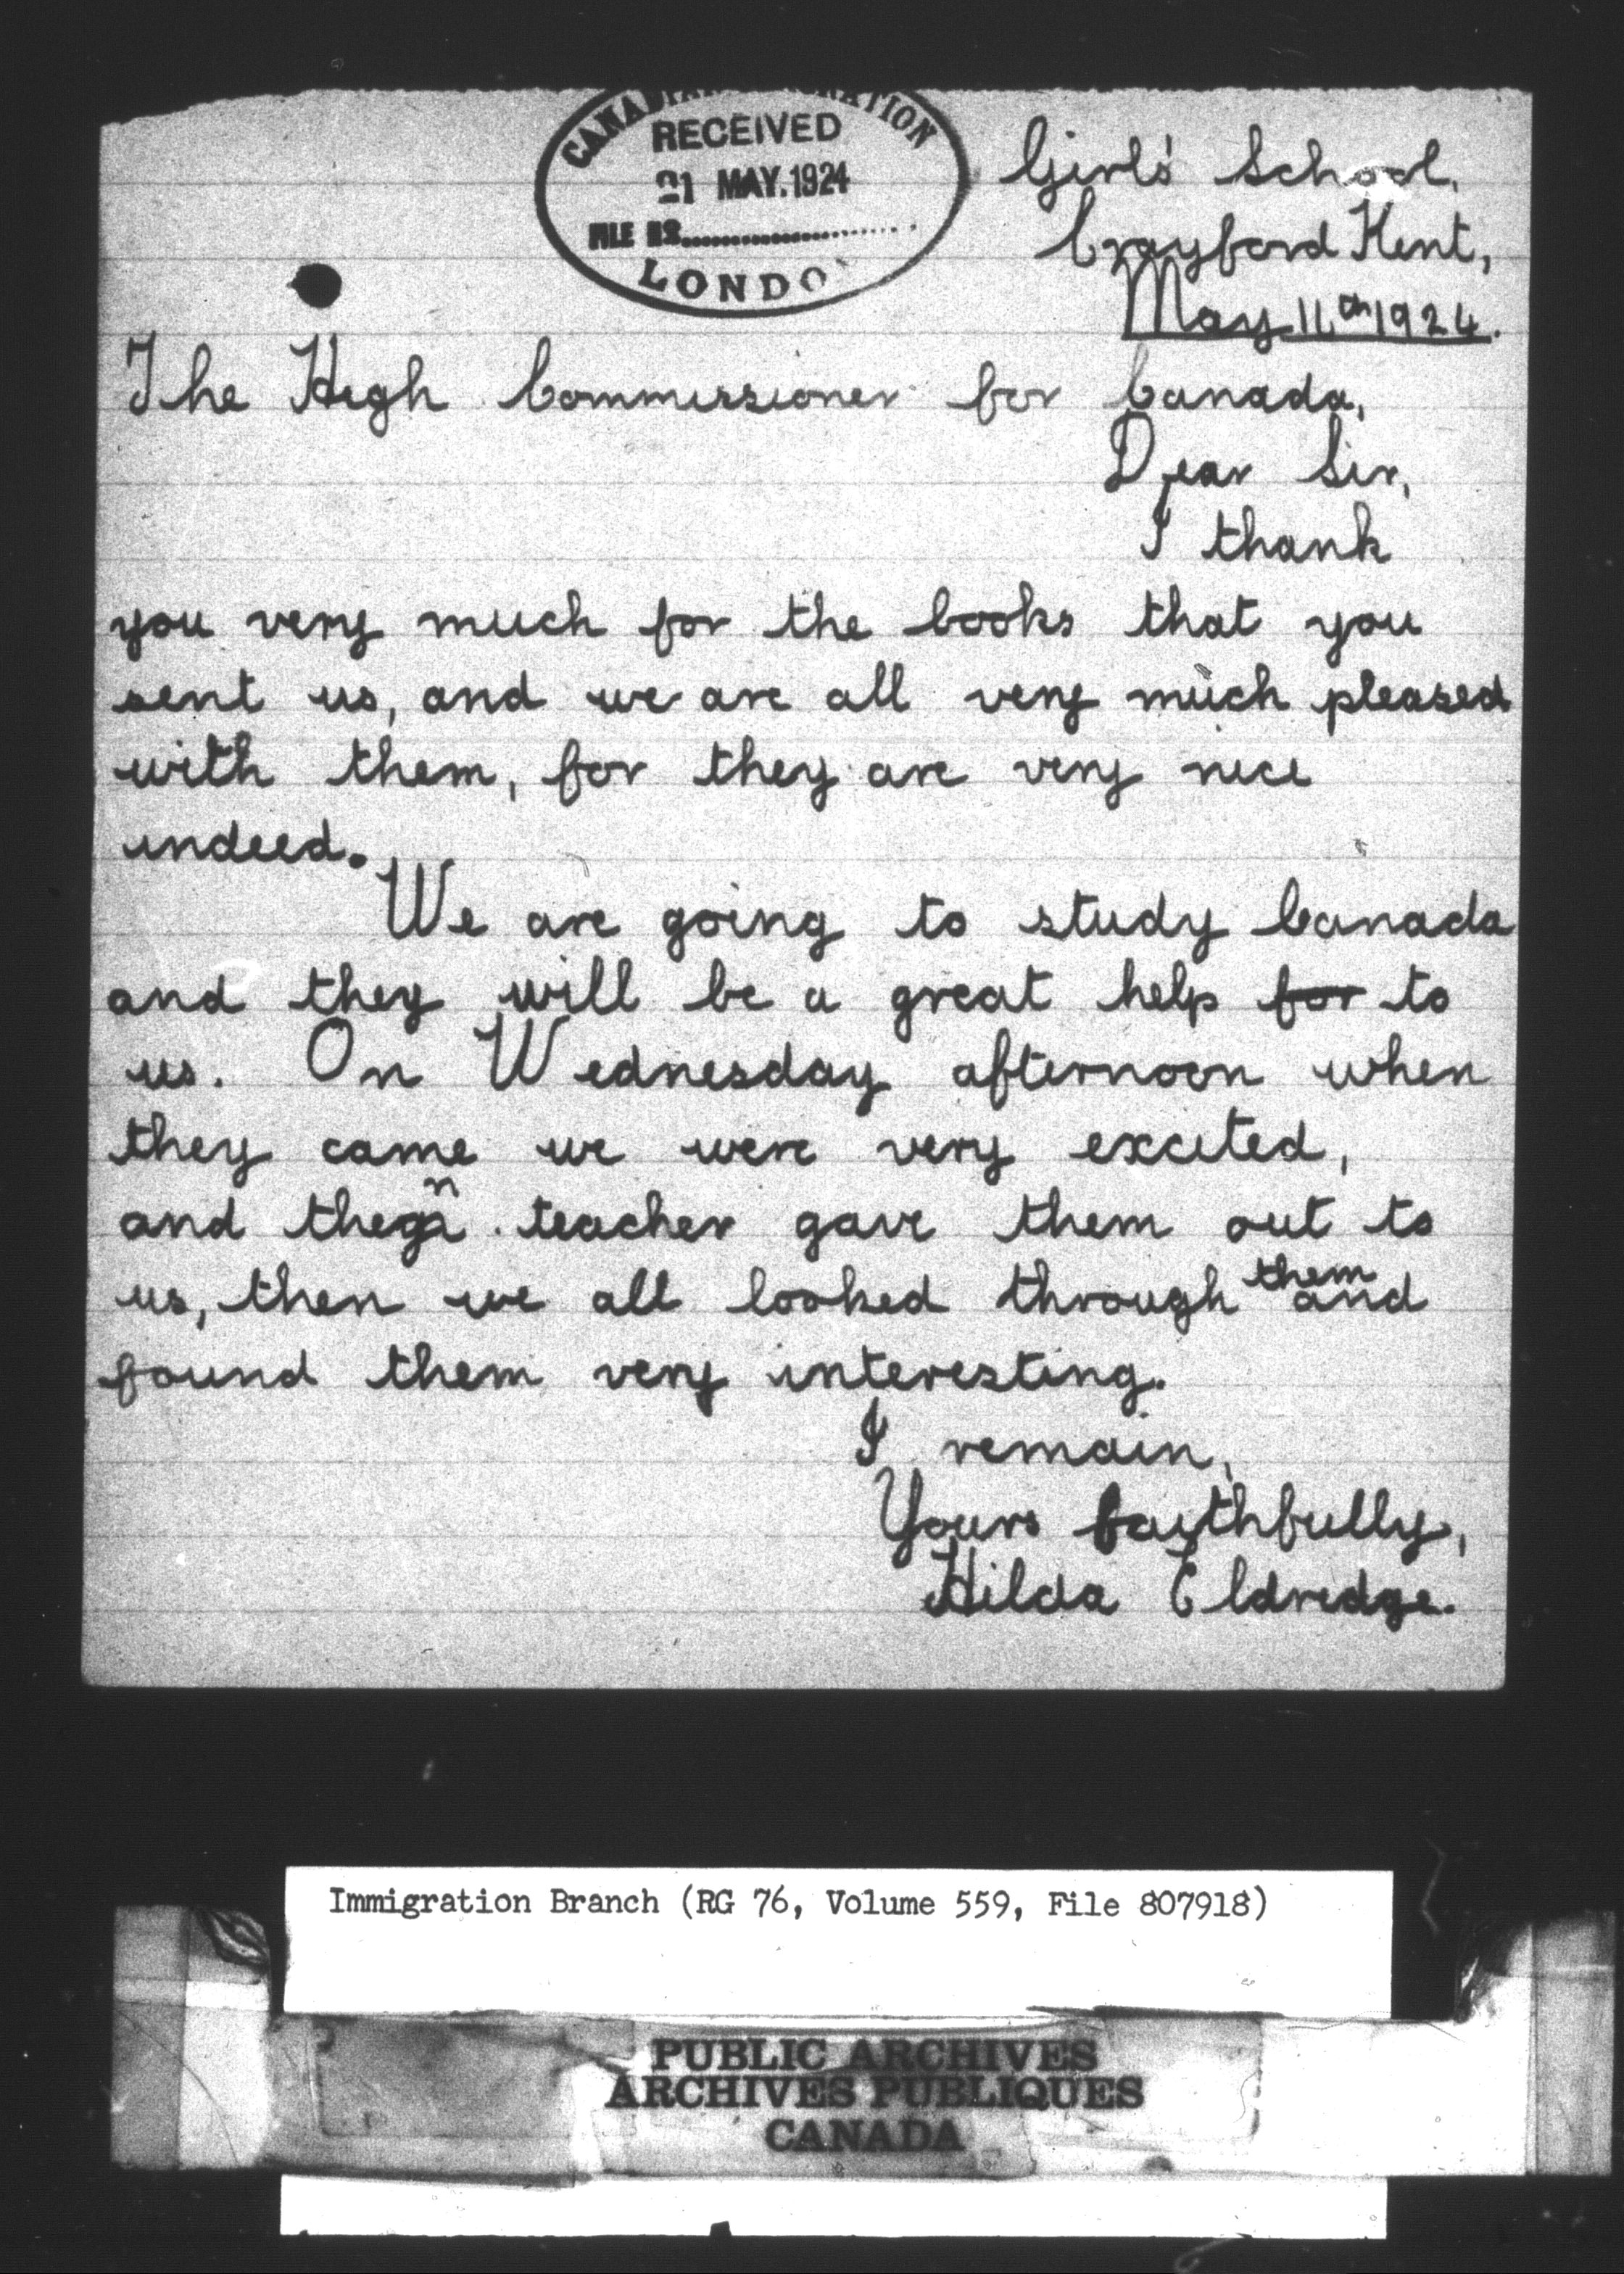 CANADIAN IMMIGRATION
RECEIVED
21 MAY.1924
FILE NO.
LONDON
Girls' School,
Crayford Kent,
May 11th 1924.
The High Commissioner for Canada,
Dear Sir,
I thank
you very much for the books that you
sent us, and we are all very much pleased
with them, for they are very nice
indeed.
We are going to study Canada
and they will be a great help for to
us. On Wednesday afternoon when
they came we were very excited,
and then teacher gave them out to
us, then we all looked through them and
found them very interesting.
I remain,
Yours faithfully,
Hilda Eldredge.
Immigration Branch (RG 76, Volume 559, File 807918)
PUBLIC ARCHIVES
ARCHIVES PUBLIQUES
CANADA